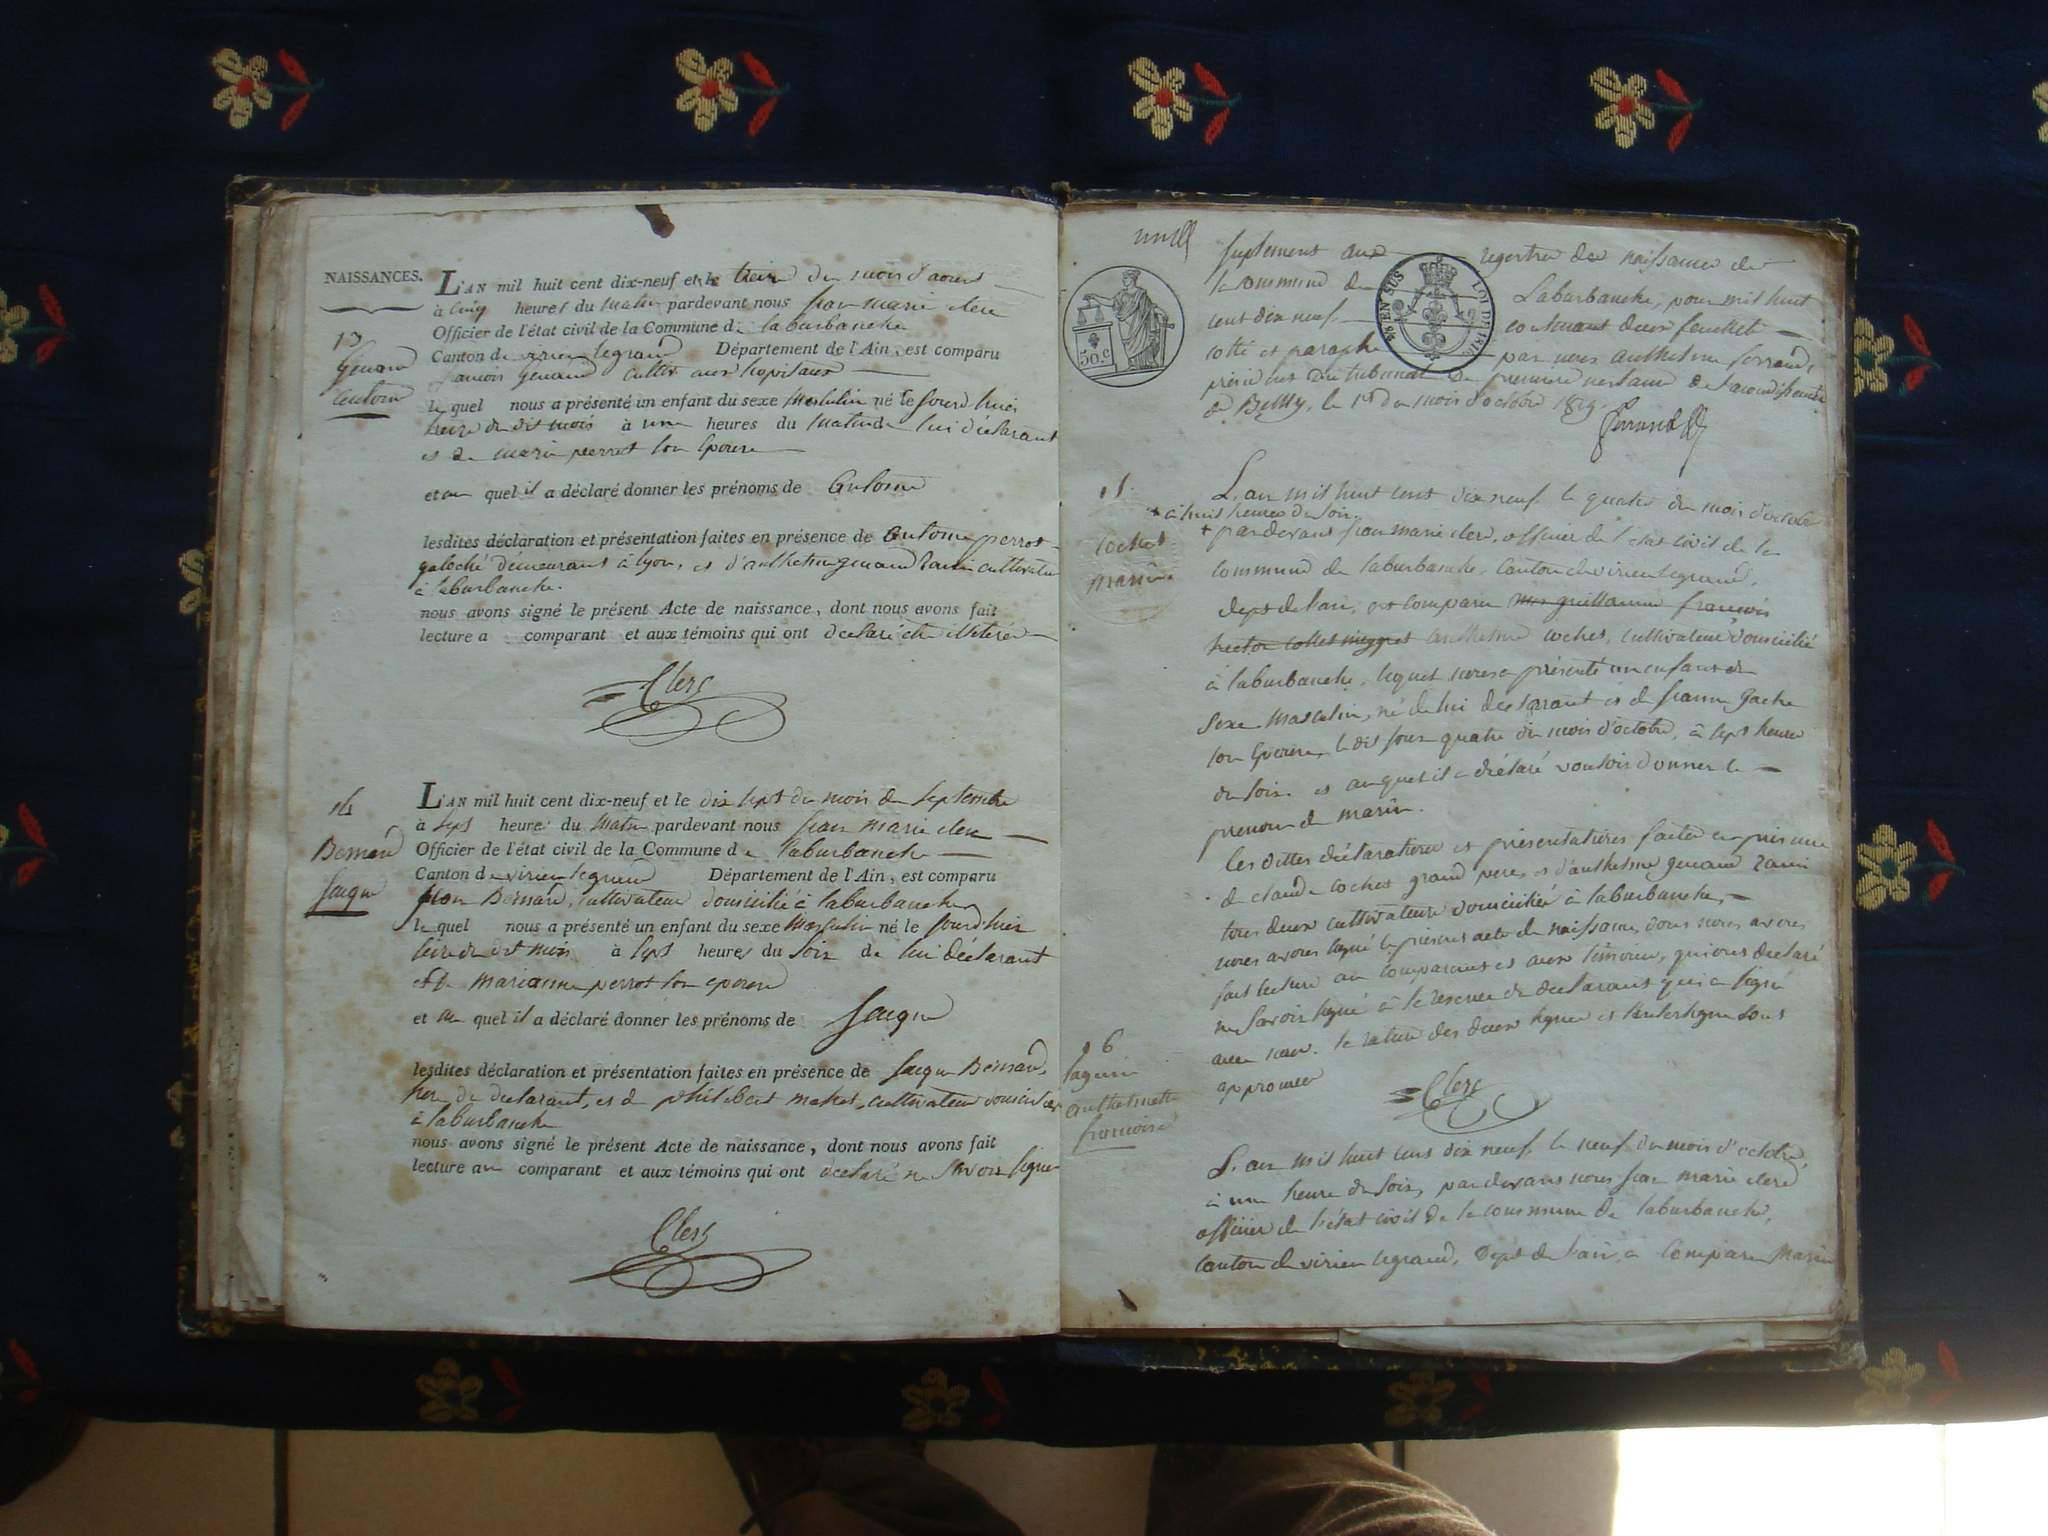 NAISSANCES.
13
Genand
Antoine
L'AN mil huit cent dix-neuf et le treize du mois d'aout
à cinq heures du matin pardevant nous jean marie clerc
Officier de l'état civil de la Commune de laburbanche
Canton de virieu legrand Département de l'Ain, est comparu
francois Genand
le quel nous a présenté un enfant du sexe Masculin né le jourd'hui
treize du dit mois à une heures du Matin de lui declarant
et de marie perrot son Epouse
et au quel il a déclaré donner les prénoms de Antoine
lesdites déclaration et présentation faites en présence de antoine perrot
galoché demeurant à lyon, et d'anthelme genand Zanin cultivateur
à laburbanche.
nous avons signé le présent Acte de naissance, dont nous avons fait
lecture a comparant et aux témoins qui ont declaré etre illeteré
Clerc
14
Bernard
Jacque
L'AN mil huit cent dix-neuf et le dix sept du mois de septembre
à sept heures du Matin pardevant nous jean marie clerc
Officier de l'état civil de la Commune de laburbanche
Canton de virieu legrand Département de l'Ain, est comparu
Bernard, cultivateur domicilié à laburbanche
le quel nous a présenté un enfant du sexe Masculin né le jourd'hier
seize du dit mois à sept heures du soir de lui déclarant
et de marianne perrot son epouse
et au quel il a déclaré donner les prénoms de Jacque
lesdites déclaration et présentation faites en présence de Jacque Bernard,
père du declarant, et de philibert cultivateur domicilié
à laburbanche
nous avons signé le présent Acte de naissance, dont nous avons fait
lecture au comparant et aux témoins qui ont declaré ne savoir signer
Clerc
suplement aux registre des naissance de
la commune de Labarbanche, pour mil huit
cent dix neuf. contenant deux feuillet
cotté et paraphé par nous anthelme ferrand,
président du tribunal de premiere instance de l'arondissement
de Belley, le 1er du mois d'octobre 1819.
Ferrand
50 c
EN SUS LOI DE 1816
15.
cochet
marin
L'an mil huit cent dix neuf le quatre du mois d'octobre
+ à huit heures du soir.
+ pardevant jean marie clerc, officier de l'etat civil de la
commune de laburbanche, canton de virieu legrand,
dept de l'ain, est comparu guillaume françois
anthelme cochet, cultivateur domicilié
à laburbanche, lequel nous a présenté un enfant de
sexe Masculin, né de lui declarant et de jeanne Gache
son Epouse, le dit jour quatre du mois d'octobre, à sept heures
du soir. et auquel il a déclaré vouloir donner le
prenom de marin.
les dittes déclarations et présentations faites en présence
de claude cochet grand pere, et d'anthelme genand Zanin
tous deux cultivateurs domiciliés à laburbanche,
nous avons signé le présent acte de naissance, dont nous avons
fait lecture au comparant et aux témoins, qui ont declaré
ne savoir signé à la reserve du declarant qui a signé
avec nous. la rature des deux lignes et l'interligne sont
approuvés
Clerc
16
anthelmette
francoise
L'an mil huit cent dix neuf le neuf du mois d'octobre,
à une heure du soir, pardevant nous jean marie clerc
officier de l'état civil de la commune de laburbanche,
canton de virieu legrand, Dept de l'ain, a comparu Marin